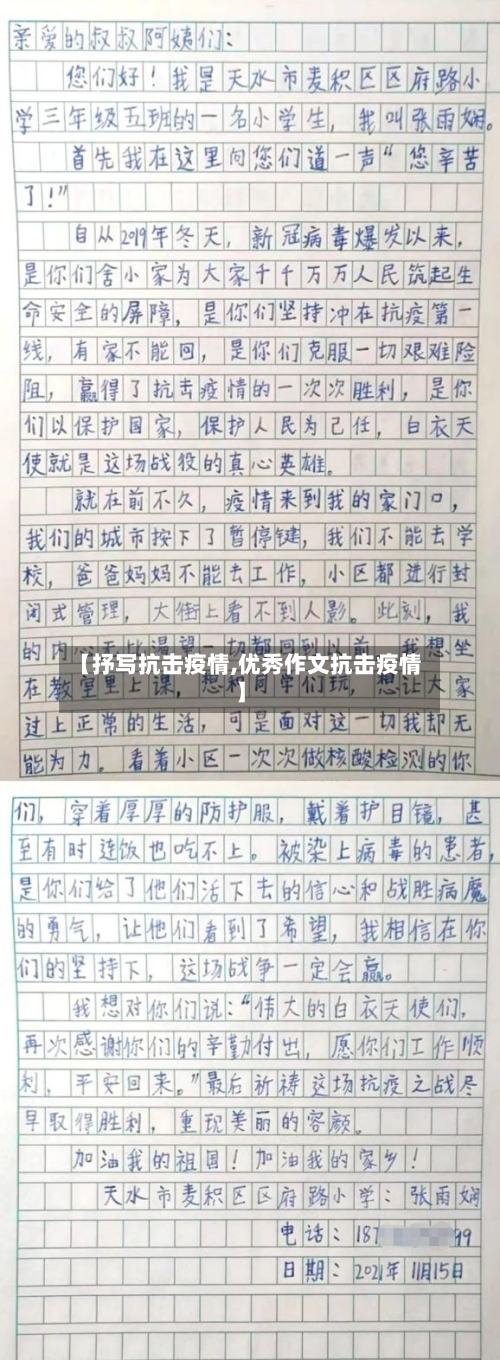 亲爱的叔叔阿姨们：
您们好！我是天水市麦积区区府路小
学三年级五班的一名小学生，我叫张雨娴。
首先我在这里向您们道一声“您辛苦
了！”
自从2019年冬天，新冠病毒爆发以来，
是你们舍小家为大家千千万万人民筑起生
命安全的屏障，是你们坚持冲在抗疫第一
线，有家不能回，是你们克服一切艰难险
阻，赢得了抗击疫情的一次次胜利，是你
们以保护国家，保护人民为己任，白衣天
使就是这场战役的真心英雄。
就在前不久，疫情来到我的家门口，
我们的城市按下了暂停键，我们不能去学
校，爸爸妈妈不能去工作，小区都进行封
闭式管理，大街上看不到人影。此刻，我
的内心无比渴望一切都回到以前，我想坐
【抒写抗击疫情,优秀作文抗击疫情
】
在教室里上课，想和同学们玩，想让大家
过上正常的生活，可是面对这一切我却无
能为力。看着小区一次次做核酸检测的你
们，穿着厚厚的防护服，戴着护目镜，甚
至有时连饭也吃不上。被染上病毒的患者，
是你们给了他们活下去的信心和战胜病魔
的勇气，让他们看到了希望，我相信在你
们的坚持下，这场战争一定会赢。
我想对你们说：“伟大的白衣天使们，
再次感谢你们的辛勤付出，愿你们工作顺
利，平安回来。”最后祈祷这场抗疫之战尽
早取得胜利，重现美丽的容颜。
加油我的祖国！加油我的家乡！
天水市麦积区区府路小学：张雨娴
电话：187 99
日期：2021年11月15日